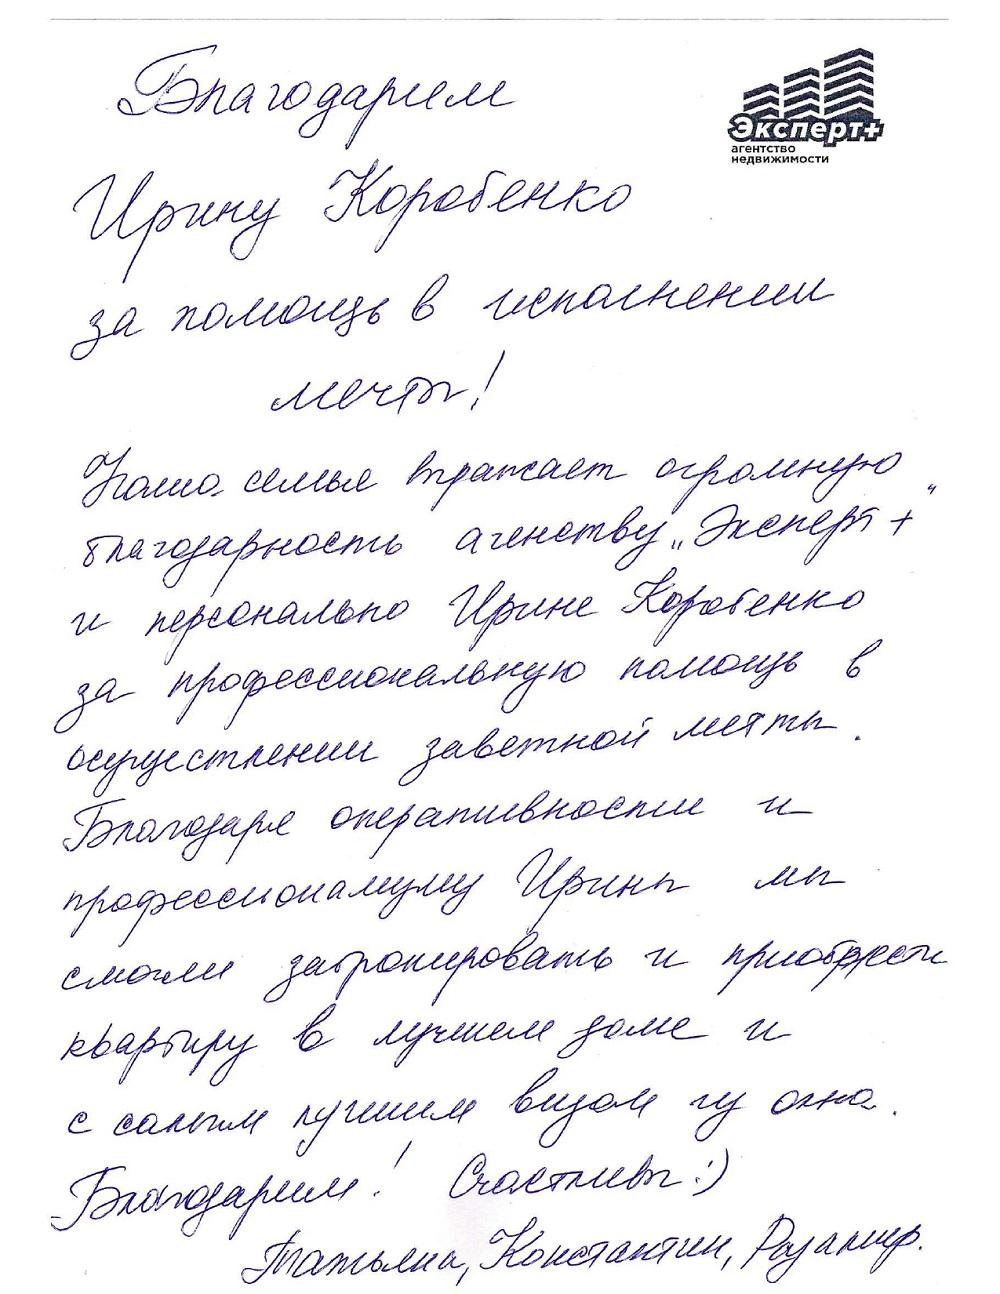 Благодарим
Эксперт+
агентство
недвижимости
Ирину Коробенко
за помощь в исполнении
мечты!
Наша семья выражает огромную
благодарность агенству „Эксперт+"
и персонально Ирине Коробенко
за профессиональную помощь в
осуществлении заветной мечты.
Благодаря оперативности и
профессионализму Ирины мы
смогли забронировать и приобрести
квартиру в лучшем доме и
с самым лучшим видом из окна.
Благодарим! Счастливы :)
Татьяна, Константин,